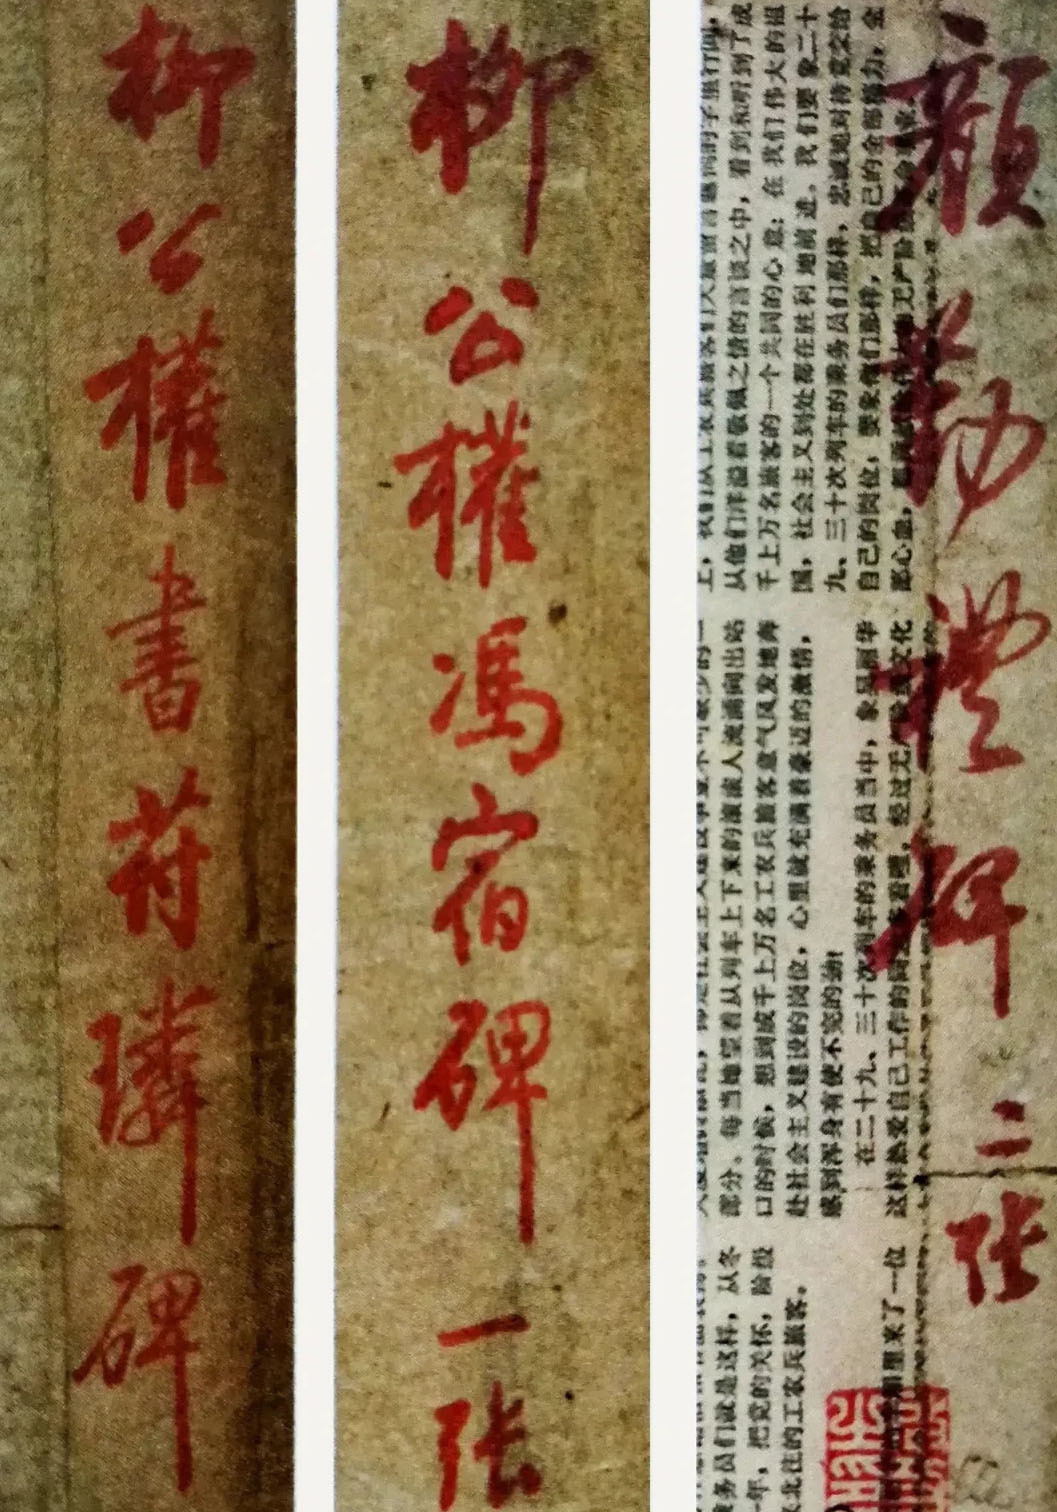 柳公權書苻璘碑
柳公權馮宿碑一张
顏勤禮碑二张
务员们就是这样，从冬
一年，把党的关怀，阶级
北往的工农兵旅客。
里来了一位
部分。每当她望着从列车上下来的滚滚人流涌向出站
口的时候，想到成千上万名工农兵旅客意气风发地奔
赴社会主义建设的岗位，心里就充满着豪迈的激情，
感到浑身有使不完的劲！
在二十九、三十次列车的乘务员当中，象吴丽华
这样热爱自己工作的同志 经过无产阶级文化
从他们洋溢着敬佩之情的言谈之中，看到和听到了成
千上万名旅客的一个共同的心意：在我们伟大的祖
国，社会主义到处都在胜利地前进。我们要象二十
九、三十次列车的乘务员们那样，忠诚地对待党交给
自己的岗位，要象他们那样，把自己的全部精力、全
部心血，